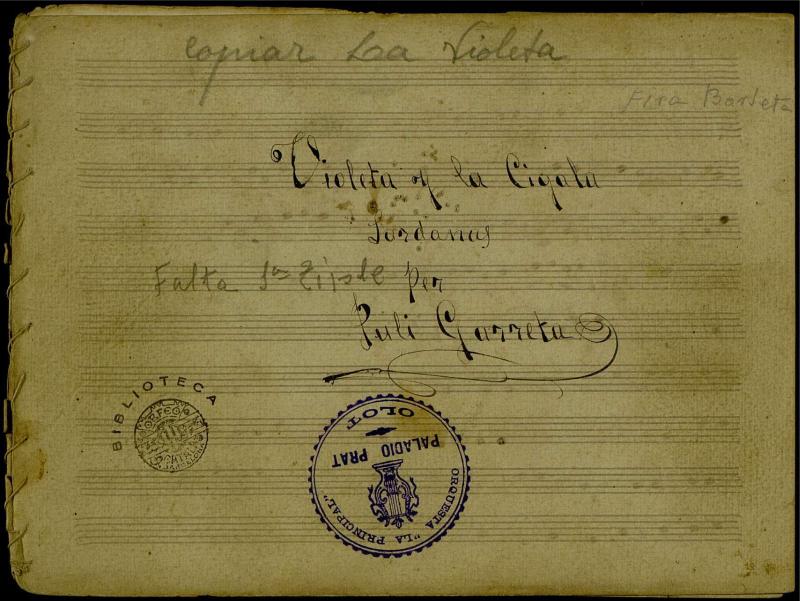 copiar La Violeta
Fira
Violeta y la Cigala
Sardanas
Falta 1er Tiple
per
Juli Garreta
BIBLIOTECA
ORFEO
OLOT
PALADIO PRAT
ORQUESTA "LA PRINCIPAL"